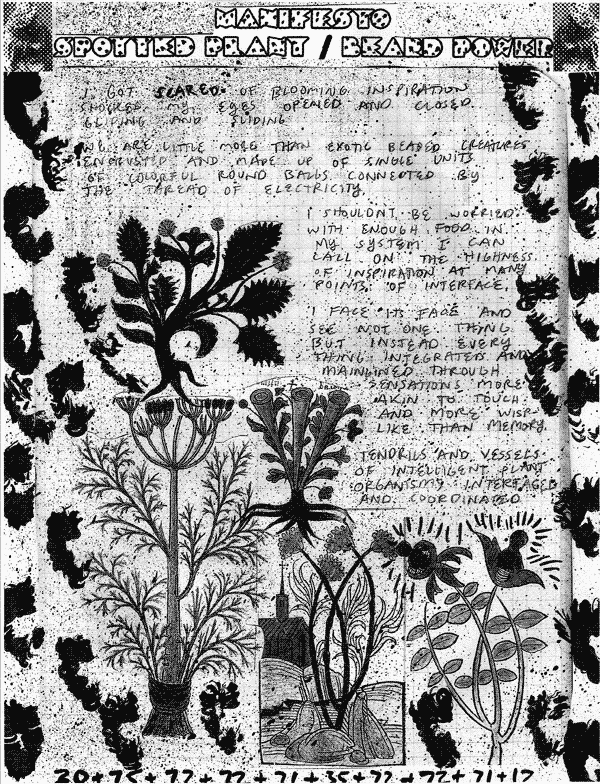 MANIFESTO
SPOTTED PLANT / BEARD POWER
I GOT SCARED OF BLOOMING INSPIRATION
SMOKED MY EYES OPENED AND CLOSED
GLIDING AND SLIDING
WE ARE LITTLE MORE THAN EXOTIC BEADED CREATURES
ENCRUSTED AND MADE UP OF SINGLE UNITS
OF COLORFUL ROUND BALLS CONNECTED BY
THE THREAD OF ELECTRICITY
I SHOULDNT BE WORRIED
WITH ENOUGH FOOD IN
MY SYSTEM I CAN
CALL ON THE HIGHNESS
OF INSPIRATION AT MANY
POINTS OF INTERFACE.
I FACE ITS FACE AND
SEE NOT ONE THING
BUT INSTEAD EVERY
THING INTEGRATED AND
MAINLINED THROUGH
SENSATIONS MORE
AKIN TO TOUCH
AND MORE WISP-
LIKE THAN MEMORY.
TENDRILS AND VESSELS
OF INTELLIGENT PLANT
ORGANISMS INTERFACED
AND COORDINATED
20+75+72+72+71+35+72+72+71+12